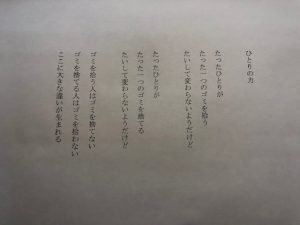 ひとりの力
たったひとりが
たった一つのゴミを拾う
たいして変わらないようだけど
たったひとりが
たった一つのゴミを捨てる
たいして変わらないようだけど
ゴミを拾う人はゴミを捨てない
ゴミを捨てる人はゴミを拾わない
ここに大きな違いが生まれる